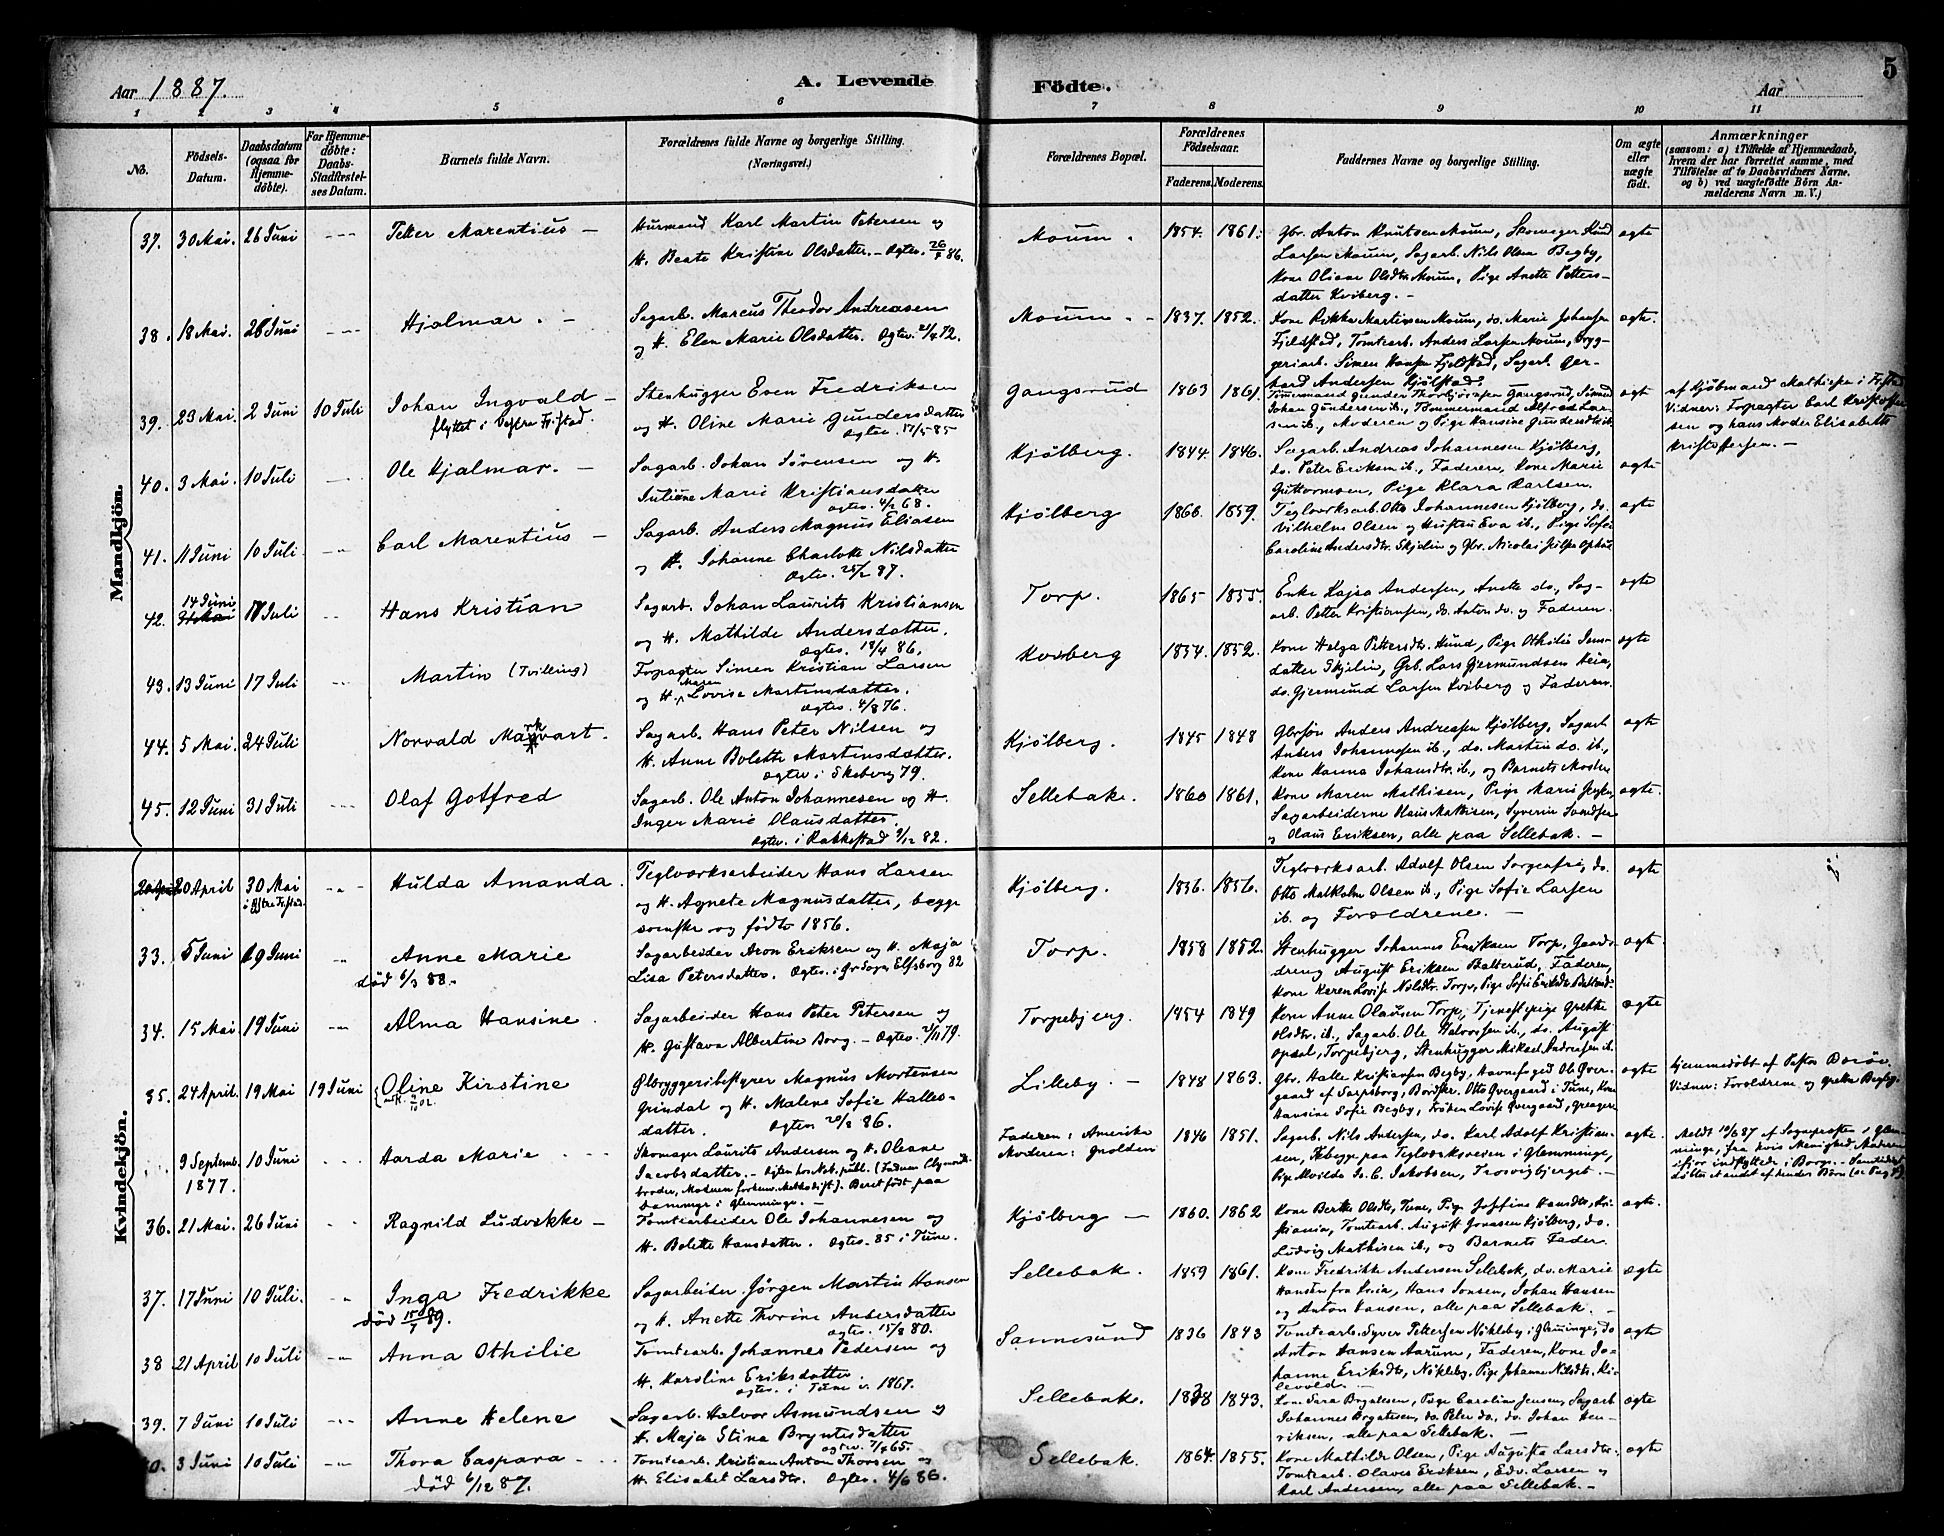 Aar 1887.
A. Levende Födte.
Aar
5
1 2 3 4 5 6 7 8 9 10 11
No.
Födsels-Datum.
Daabsdatum (ogsaa for Hjemmedöbte).
For Hjemmedöbte: Daabs-Stadfæstelses Datum.
Barnets fulde Navn.
Forældrenes fulde Navne og borgerlige Stilling. (Næringsvei.)
Forældrenes Bopæl.
Forældrenes Födselsaar.
Faderens. Moderens.
Faddernes Navne og borgerlige Stilling.
Om ægte eller uægte födt.
Anmærkninger
(saasom: a) i Tilfælde af Hjemmedaab, hvem der har forrettet samme, med Tilföielse af to Daabsvidners Navne, og b) ved uægtefödte Börn Anmelderens Navn m. V.)
Mandkjön.
37. 30 Mai. 26 Juni Petter Marentius – Husmand Karl Martin Petersen og
H. Beate Kristine Olsdatter. – Ægtev. 86.
Moum. 1854. 1861. Gbr. Anton Knutsen Moum, Skomager Knud
Larsen Moum, Sagarb. Nils Olsen Begby,
Kone Oliane Olsdtr Moum, Pige Anette Petters-
datter Kviberg. – ægte
38. 18 Mai. 26 Juni Hjalmar. – Sagarb. Marcus Theodor Andreasen
og H. Elen Marie Olsdatter. Ægtev. 72.
Moum. – 1837. 1852. Kone Martinsen Moum, do. Marie Johansen
Fjeldstad, Tomtearb. Anders Larsen Moum, Bryg-
geriarb. Simen Hansen Fjeldstad, Sagarb. Ger-
hard Andersen Kjölstad. ægte.
39. 23 Mai. 2 Juni 10 Juli Johan Ingvald –
flyttet i Vestre Fr.stad.
Stenhugger Even Fredriksen
og H. Oline Marie Gundersdatter
Ægtev. 17/5 85
Gangsrud 1863 1861. Tömmermand Gunder Thorbjörnsen Gangsrud,
Johan Gundersen ib., Tömmermand Alfred Lar-
sen ib., Moderen og Pige Hansine Gundersdtr ib. ægte
af Kjöbmand Mathiesen i Fr.stad
Vidner: Forpagter Carl Kristoffer-
sen og hans Moder Elisabeth
Kristoffersen. –
40. 3 Mai. 10 Juli Ole Hjalmar. – Sagarb. Johan Sörensen og H.
Juliane Marie Kristiansdatter
Ægtev. 68.
Kjölberg. 1844. 1846. Sagarb. Andreas Johannesen Kjölberg,
do. Peter Eriksen ib., Faderen, Kone Marie
Guttormsen, Pige Klara Karlsen. ægte
41. 11 Juni 10 Juli Carl Marentius – Sagarb. Anders Magnus Eliasen
og H. Johanne Charlotte Nilsdatter
Ægtev. 87.
Kjölberg 1860. 1859. Teglværksarb. Otto Johannesen Kjölberg, do.
Vilhelm Olsen og Hustru Eva ib., Pige Sofie
Caroline Andersdtr. Skjelin og Gbr. Nicolai ægte
42. 14 Juni 17 Juli Hans Kristian Sagarb. Johan Laurits Kristiansen
og H. Mathilde Andersdatter.
Ægtev. 18/4 86.
Torp. 1865 1855. Enke Kajsa Andersen, Anette do., Sag-
arb. Petter Kristiansen, do. Anton do. og Faderen. ægte
43. 13 Juni 17 Juli Martin (Tvilling) Forpagter Simen Kristian Larsen
og H. Maren Lovise Martinsdatter.
Ægtev. 4/8 76.
Kviberg 1854. 1852. Kone Helga Pettersdtr. Hund, Pige Othilie Jens-
datter Skjelin, Gbr. Lars Gjermundsen Heia,
do. Gjermund Larsen Kviberg og Faderen. ægte
44. 5 Mai. 24 Juli Norvald Markvart. Sagarb. Hans Peter Nilsen og
H. Anne Bolette Martinsdatter.
Ægtev i Skeberg 79.
Kjölberg. 1845 1848 Gbrsön Anders Andreasen Kjölberg, Sagarb
Anders Johannesen ib., do. Martin do. ib.,
Kone Hanna Johansdtr. ib., og Barnets Moder ægte
45. 12 Juni 31 Juli Olaf Gotfred Sagarb. Ole Anton Johannesen og H.
Inger Marie Olausdatter.
Ægtev. i Rakkestad 9/12 82.
Sellebak. 1860 1861. Kone Maren Mathisen, Pige Marie
Sagarbeiderne Hans Mathisen, Syverin
og Olaus Eriksen, alle paa Sellebak. – ægte.
Kvindekjön.
20 April 30 Mai
i Östre Fr.stad
Hulda Amanda. Teglværksarbeider Hans Larsen
og H. Agnete Magnusdatter, begge
svenske og födte 1856.
Kjölberg. 1856. 1856. Teglværksarb. Adolf Olsen Sorgenfri, do.
Otto Malkolm Olsen ib., Pige Sofie Larsen
ib. og Forældrene. – ægte
33. 5 Juni 19 Juni Anne Marie
död 6/3 88.
Sagarbeider Aron Eriksen og H. Maja
Lisa Petersdatter. Ægtev. i Elfsborg 82
Torp. 1858 1852. Stenhugger Johannes Eriksen Torp, Gaards-
dreng August Eriksen Balterud, Faderen,
Kone Karen Lovise Nilsdtr. Torp, Pige Sofie Eriksdtr Balterud. ægte
34. 15 Mai 19 Juni Alma Hansine. Sagarbeider Hans Peter Petersen og
H. Gustava Albertine Borg. – Ægtev. 79.
Torpebjerg. 1854 1849 Kone Anne Olausen Torp, Tjenestpige Grethe
Olsdtr. ib., Sagarb. Ole Halvorsen ib., do. August
Opsal, Torpebjerg, Stenhugger Mikael Andreasen ib. ægte
35. 24 April. 19 Mai 19 Juni Oline Kirstine Ölbryggeribestyrer Magnus Mortensen
Grindal og H. Malene Sofie Halles-
datter. Ægtev 86.
Lilleby. – 1848 1863. Gbr. Halle Kristiansen Begby, Havnefoged Ole Over-
gaard af Sarpsborg, Otto Overgaard i Tune, Kone
Hansine Sofie Begby, Fröken Lovise Overgaard, ægte
Hjemmedöbt af Pastor
Vidner: Forældrene og Grethe Begby.
9 Septemb. 1877. 10 Juni Harda Marie Skomager Laurits Andersen og H. Oleane
Jacobsdatter. – Ægtev. hos Not. publ. (Faderen
Moderen Methodist). Barnet födt paa
i Glemminge. –
Faderen: Amerika
Moderen: Gnolden
1846 1851. Sagarb. Nils Andersen, do. Karl Adolf Kristian-
sen, begge paa Teglværksveien i Glemminge,
Pige Alvilde Jakobsen, Trosvigbjerget. – ægte.
Meldt 10/6 87 af Sognepresten i Glem-
minge, fra hvis Menighed Moderen
ifjor indflyttede i Borge. – Samtidig
döbtes et andet af hendes Börn (se Pag.
36. 21 Mai. 26 Juni Ragnild Ludvikke – Tomtearbeider Ole Johannesen og
H. Bolette Hansdatter. Ægtev. 85 i Tune.
Kjölberg – 1860. 1862 Kone Berthe Olsdtr, Tune, Pige Josefine Hansdtr, Kri-
stiania, Tomtearb. August Jonassen Kjölberg, do.
Ludvig Mathisen ib., og Barnets Fader. ægte.
37. 17 Juni 10 Juli. Inga Fredrikke
död 89.
Sagarbeider Jörgen Martin Hansen
og H. Anette Thorine Andersdatter
Ægtev. 15/8 80.
Sellebak. 1859 1861. Kone Fredrikke Andersen Sellebak, do. Marie
Hansen fra Hvia, Hans Jonsen, Johan Hansen
og Anton Hansen, alle paa Sellebak. – ægte
38 21 April 10 Juli Anna Othilie Tomtearb. Johannes Pedersen og
H. Karoline Eriksdatter.
Ægtev. i Tune 1867.
Sannesund 1836 1843 Tomtearb. Syver Pettersen Nökleby i Glemminge, do
Anton Hansen Aarum, Faderen, Kone Jo-
hanne Eriksdtr, Nökleby, Pige Johanne Nilsdtr. ægte
39. 7 Juni 10 Juli Anne Helene Sagarb. Halvor Asmundsen og
H. Maja Stina Bryntesdatter
Ægtev. 65.
Sellebak. 1838 1843. Kone Sara Bryntesen, Pige Caroline Jensen, Sagarb
Johannes Bryntesen, do. Peter do., do. Johan Hen-
riksen, alle paa Sellebak. – ægte
3 Juni 10 Juli Thora Caspara
död 6/12 87.
Tomtearb. Kristian Anton Thorsen og
H. Elisabet Larsdtr. Ægtev. 4/6 86.
Sellebak. 1864. 1855. Kone Mathilde Olsen, Pige Augusta Larsdtr.
Tomtearb. Olaves Eriksen, Edv. Larsen og
Karl Andersen, alle paa Sellebak. – ægte